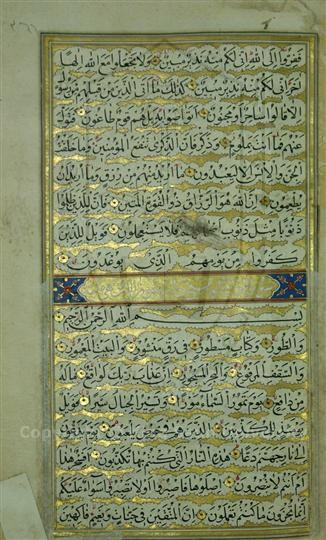 ففروا إلى الله إني لكم منه نذير مبين ولا تجعلوا مع الله إلها
آخر إني لكم منه نذير مبين كذلك ما أتى الذين من قبلهم من رسول
إلا قالوا ساحر أو مجنون أتواصوا به بل هم قوم طاغون فتول
عنهم فما أنت بملوم وذكر فإن الذكرى تنفع المؤمنين وما خلقت
الجن والإنس إلا ليعبدون ما أريد منهم من رزق وما أريد أن
يطعمون إن الله هو الرزاق ذو القوة المتين فإن للذين ظلموا
ذنوبا مثل ذنوب أصحابهم فلا يستعجلون فويل للذين
كفروا من يومهم الذي يوعدون
بسم الله الرحمن الرحيم
والطور وكتاب مسطور في رق منشور والبيت المعمور
والسقف المرفوع والبحر المسجور إن عذاب ربك لواقع ما له
من دافع يوم تمور السماء مورا وتسير الجبال سيرا فويل
يومئذ للمكذبين الذين هم في خوض يلعبون يوم يدعون
إلى نار جهنم دعا هذه النار التي كنتم بها تكذبون أفسحر هذا
أم أنتم لا تبصرون اصلوها فاصبروا أو لا تصبروا سواء عليكم
إنما تجزون ما كنتم تعملون إن المتقين في جنات ونعيم فاكهين